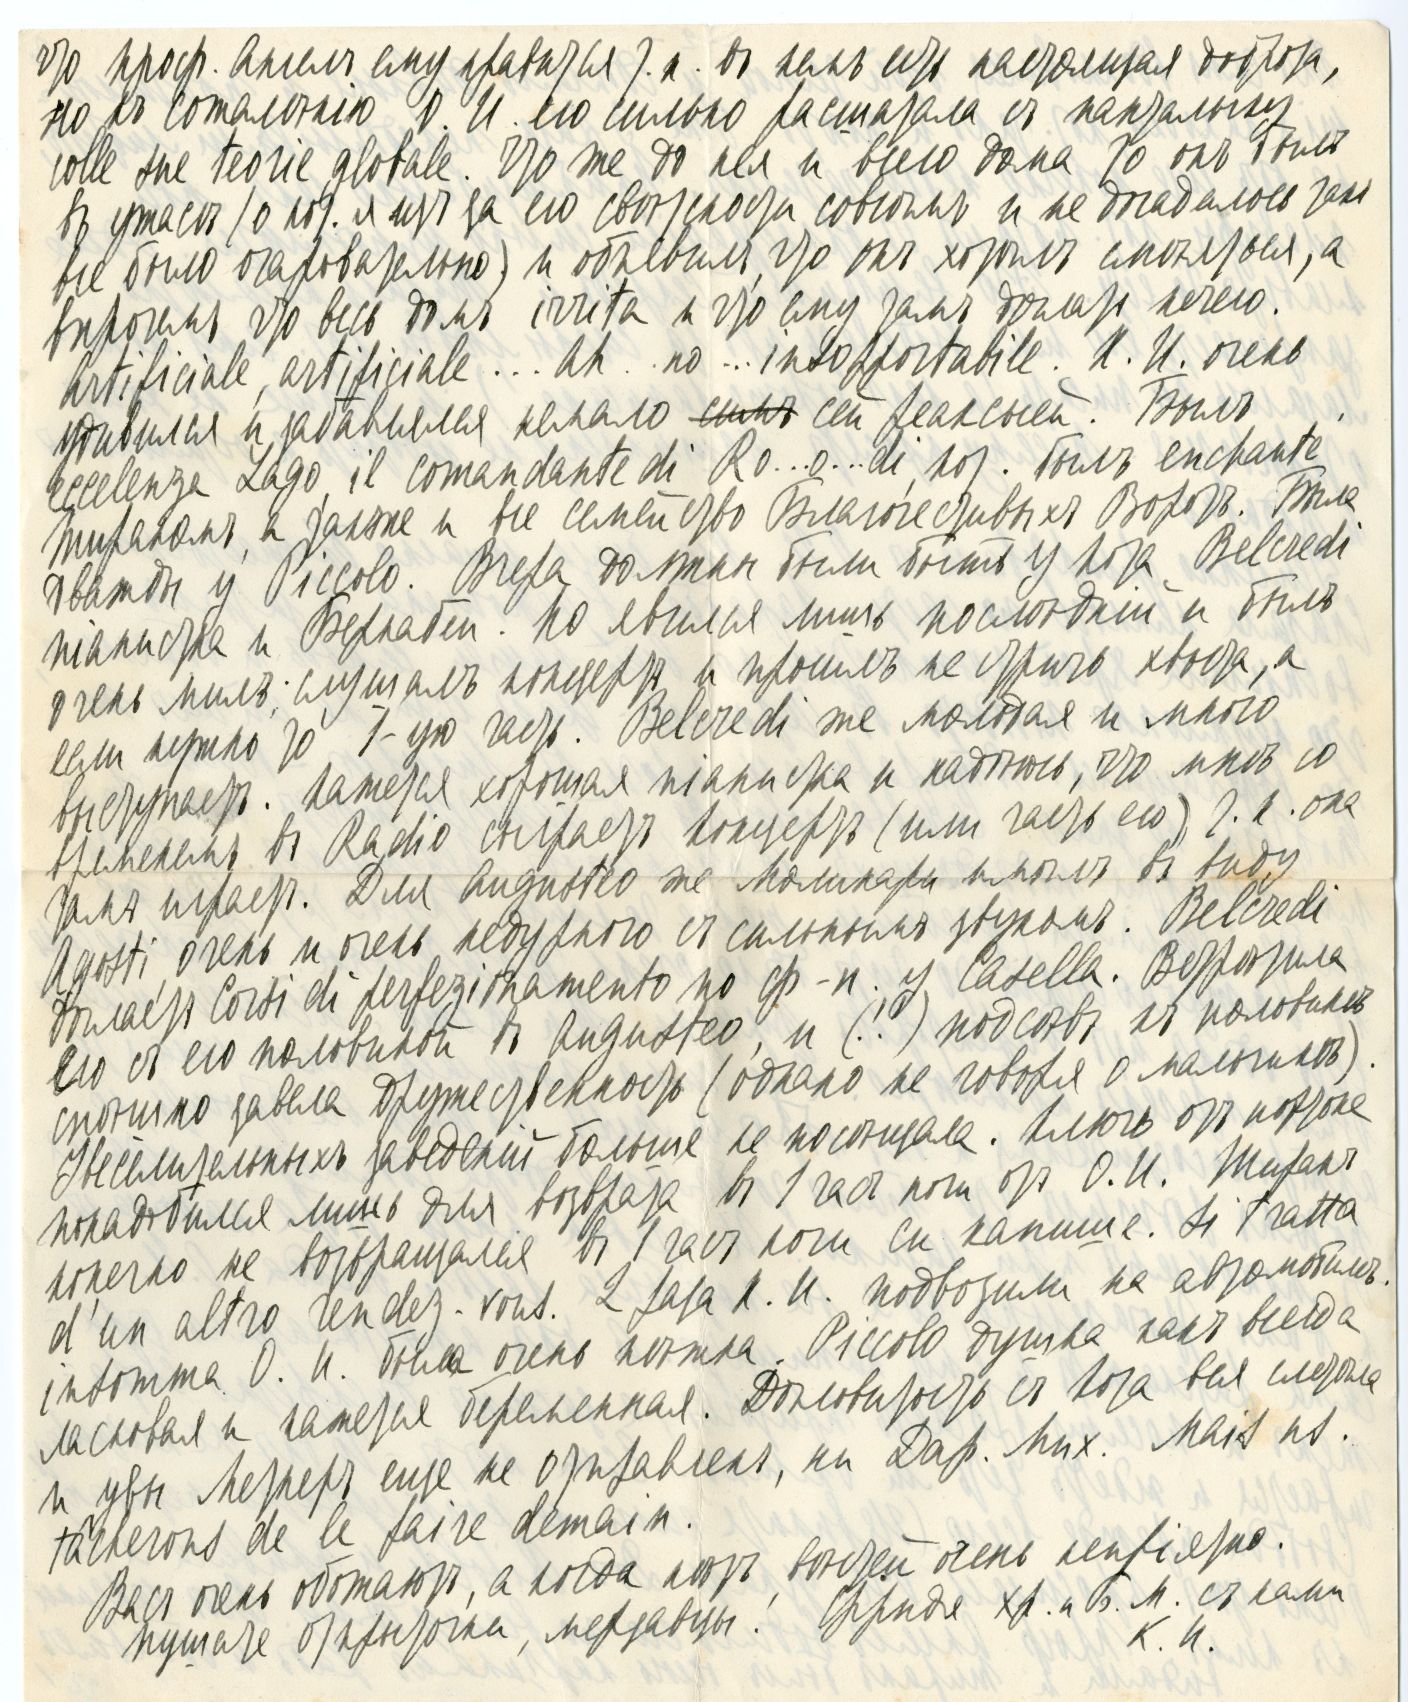 что проф. Ангелъ ему нравится т. к. въ немъ есть настоящая доброта,
но къ сожалѣнію О. И. его сильно
colle sue teorie globale. Что же до нея и всего дома то онъ былъ
въ ужасѣ (о кот. я изъ за его свѣтскости совсѣмъ и не догадалась такъ
все было очаровательно) и объявилъ, что онъ хотѣлъ смѣяться, а
впрочемъ что весь домъ irrita и что ему тамъ дѣлать нечего.
Artificiale, artificiale ... Ah .. no ... insopportabile. К. И. очень
удивился и забавлялся немало симъ сей реакціей. Былъ
eccelenza Lago, il comandante di Ro...o...di, кот. былъ enchanté
Тираномъ, а также и все семейство Благочестивыхъ Воротъ. Была
дважды у Piccolo. Вчера должны были быть у Кота Belcredi
піанистка и Бернабеи. Но явился лишь послѣдній и былъ
очень милъ; слушалъ концертъ и просилъ не стричь хвоста, а
если нужно то 1-ую часть. Belcredi же молодая и много
выступаетъ. Кажется хорошая піанистка и надѣюсь, что мнѣ со
временемъ въ Radio сыграетъ концертъ (или часть его) т. к. она
тамъ играетъ. Для Augusteo же Молинари имѣлъ въ виду
Agosti, очень и очень недурного съ сильнымъ звукомъ. Belcredi
дѣлаетъ Corsi di perfezionamento по ф-п. у Casella. Встрѣтила
его съ его половиной въ Augusteo, и (!!) подсѣвъ къ половинѣ
спѣшно завела дружественность (однако не говоря о мальчикѣ).
Увеселительныхъ заведеній больше не посѣщала. Ключъ отъ
понадобился лишь для возврата въ 1 часъ ночи отъ О. И. Тиранъ
конечно не возвращался въ 1 часъ ночи си капише. Si tratta
d'un altro rendez-vous. 2 раза К. И. подвозили на автомобилѣ.
insomma О. И. была очень нѣжна. Piccolo душка какъ всегда
ласковая и кажется беременная. Дѣловитость съ Кота вся слетѣла
и увы Метнеръ еще не отправленъ, ни Дар. Мих. Mais ns.
tâcherons de le faire demain.
Васъ очень обожаютъ, а когда нѣтъ вѣстей очень непріятно.
Пушате открыточки, мерзавцы! Фридя хр. и б. М. съ нами
К. И.